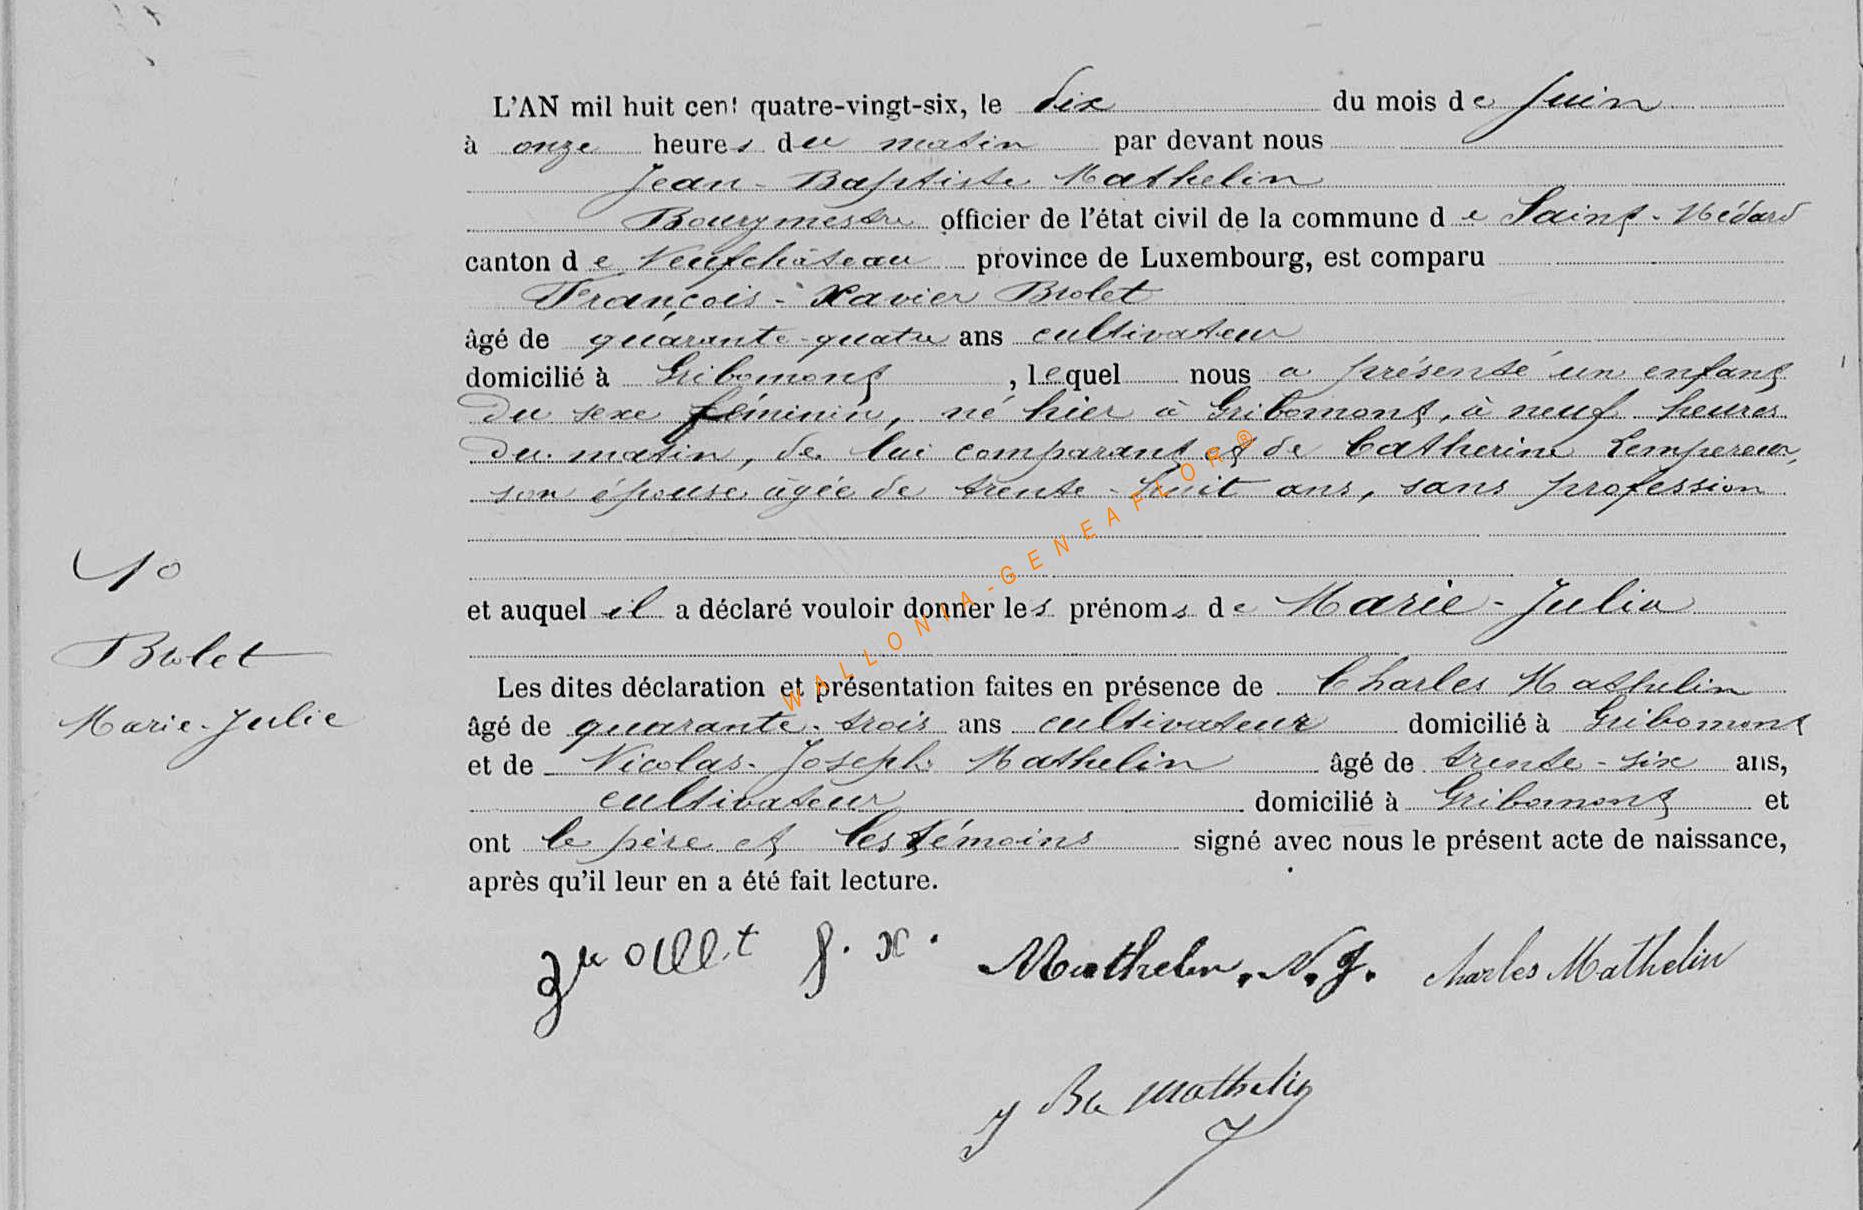 L'AN mil huit cent quatre-vingt-six, le dix du mois de juin
à onze heures du matin par devant nous
Jean-Baptiste Mathelin
Bourgmestre officier de l'état civil de la commune de Saint-Médard
canton de Neufchâteau province de Luxembourg, est comparu
François-Xavier Brolet
âgé de quarante-quatre ans cultivateur
domicilié à Gribomont, lequel nous a présenté un enfant
du sexe féminin, né hier à Gribomont, à neuf heures
du matin, de lui comparant et de Catherine Lempereur,
son épouse âgée de trente-huit ans, sans profession
10
et auquel il a déclaré vouloir donner les prénoms de Marie-Julia
Brolet
Les dites déclaration et présentation faites en présence de Charles Mathelin
Marie-Julie
âgé de quarante-trois ans cultivateur domicilié à Gribomont
et de Nicolas-Joseph Mathelin âgé de trente-six ans,
cultivateur domicilié à Gribomont et
ont le père et les témoins signé avec nous le présent acte de naissance,
après qu'il leur en a été fait lecture.
f. x. Mathelin, N. J. Charles Mathelin
J Bte Mathelin
WALLONIA-GENEAFLOR®